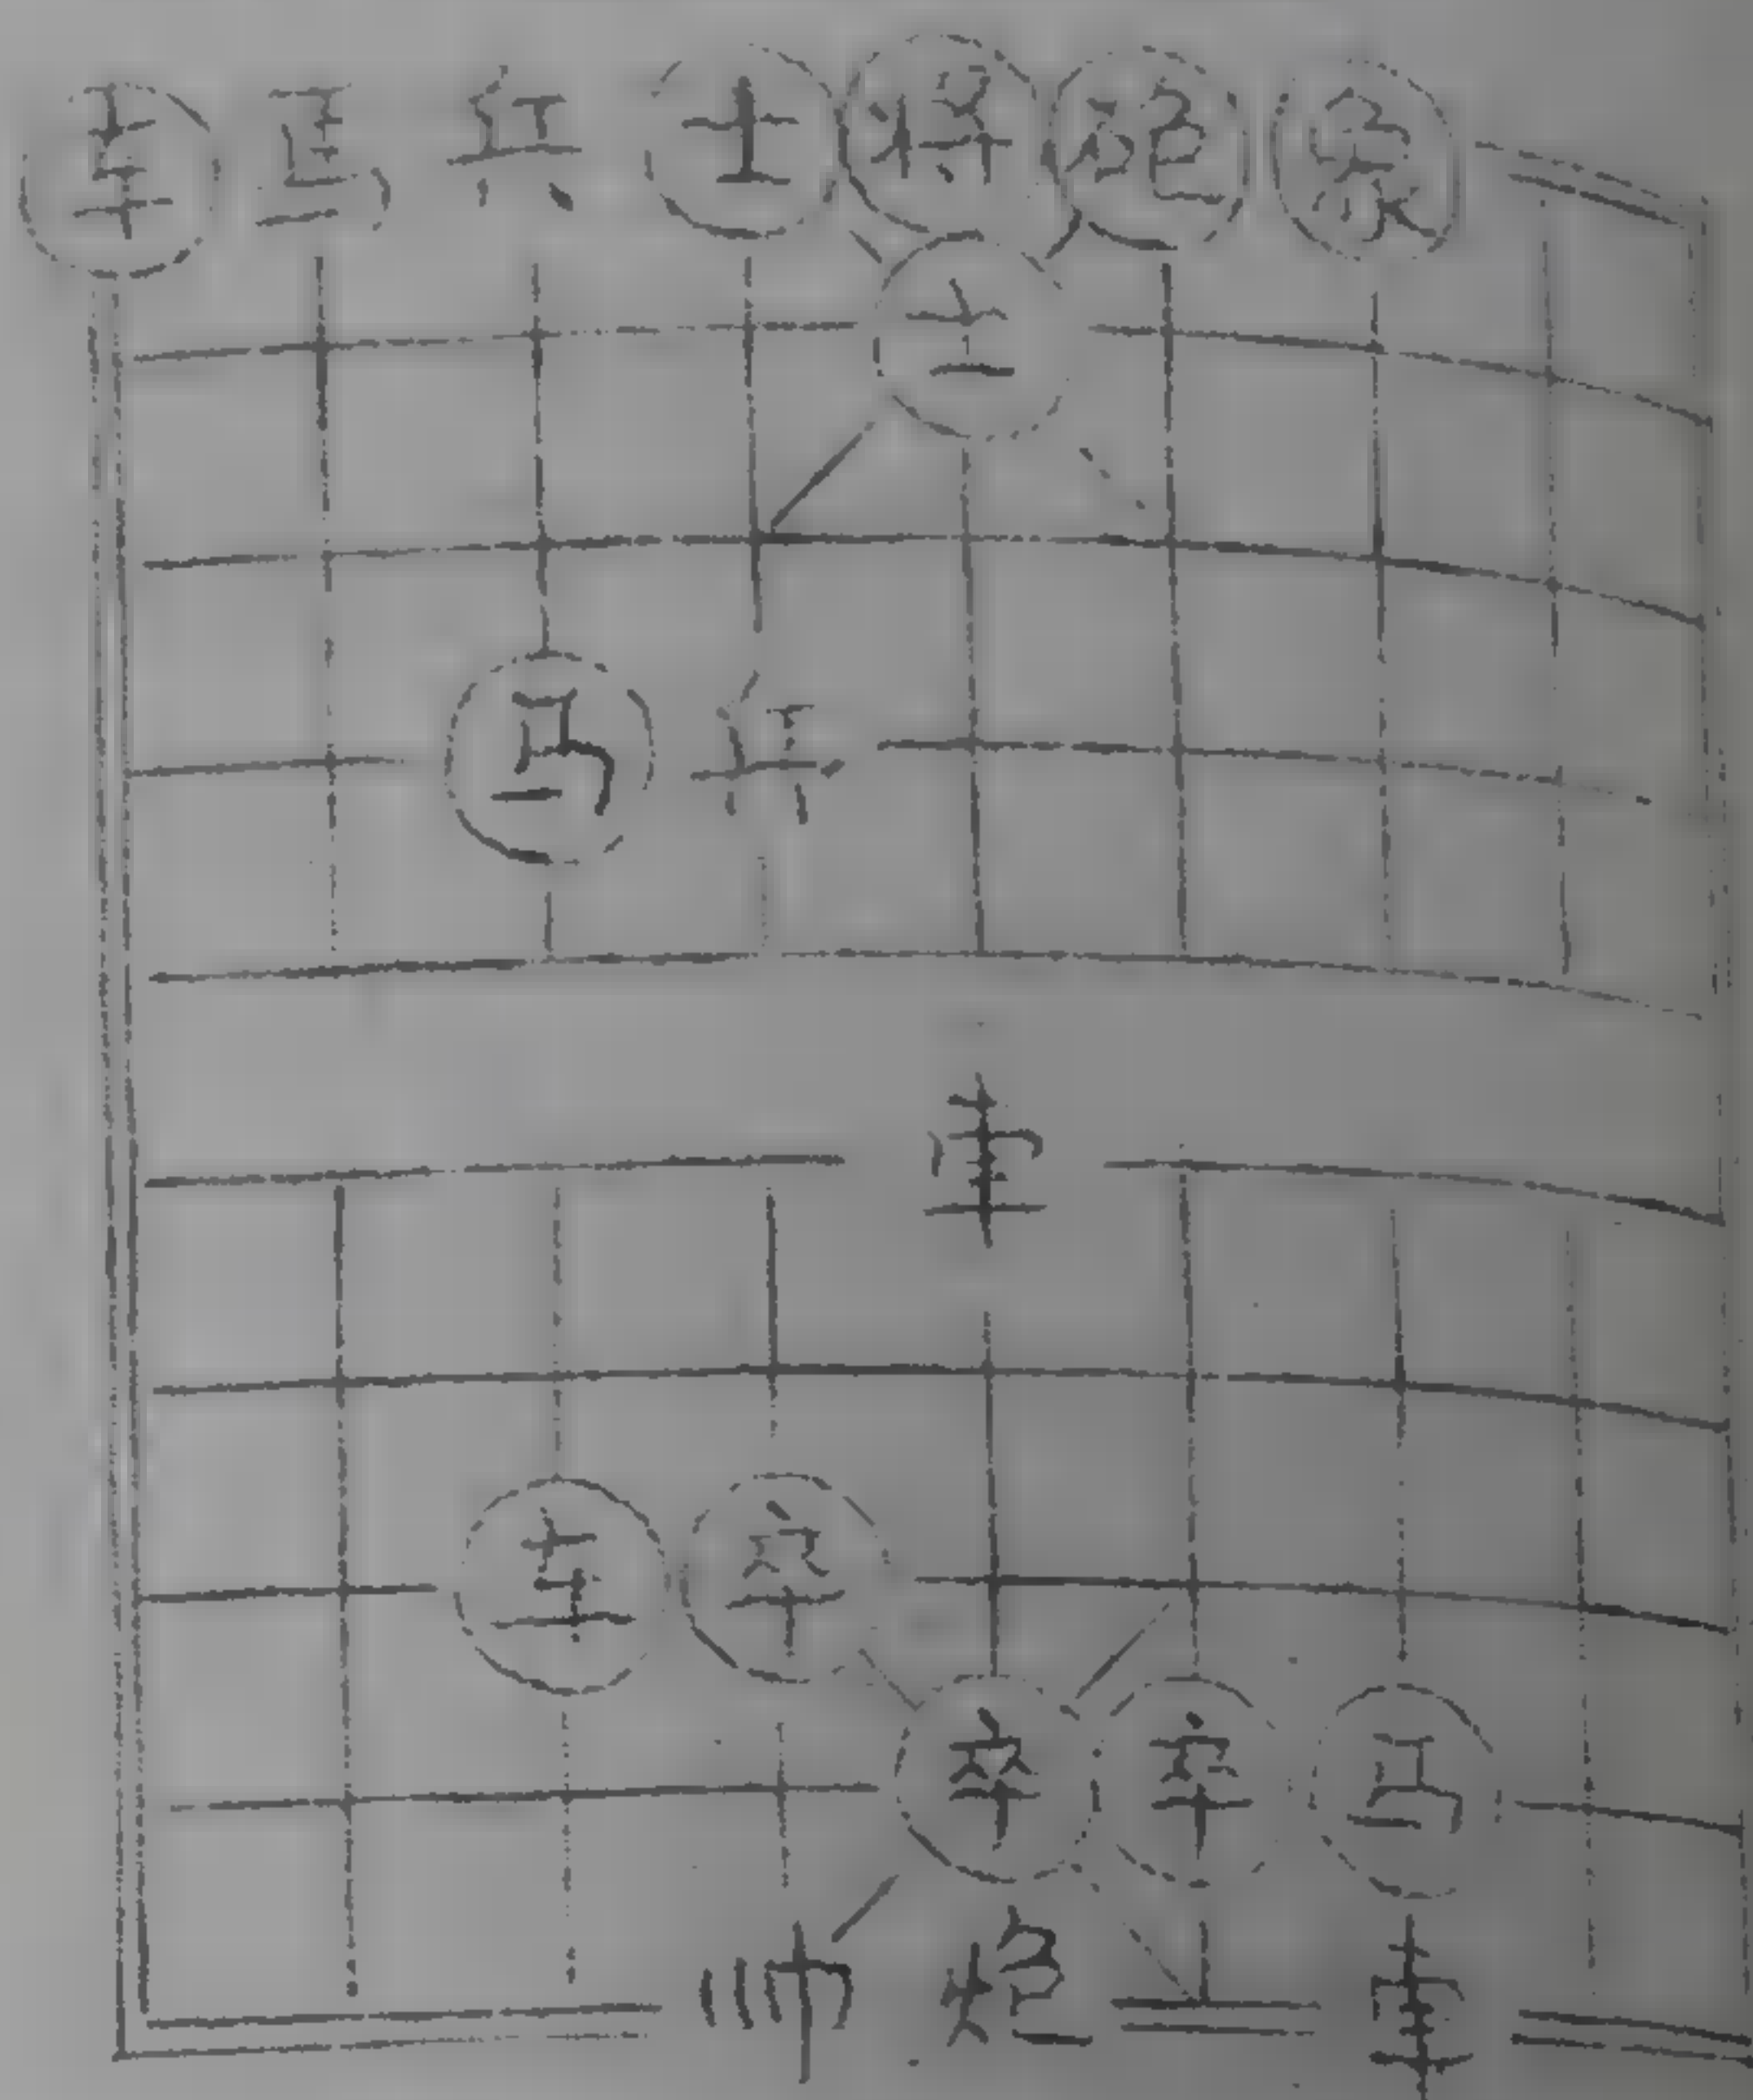 车马兵士将炮象
士
马兵
車
车卒
卒卒马
帅炮車